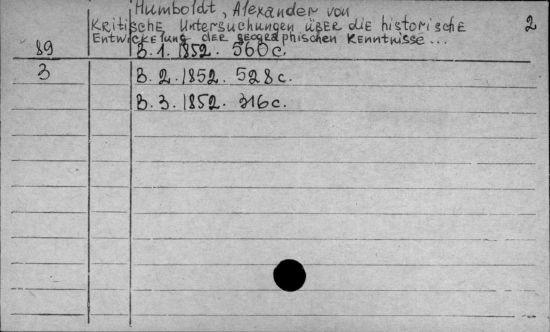 Humboldt, Alexander von
Kritische Untersuchungen über die historische 2
Entwickelung der geographischen Kenntnisse ...
89 B. 1. 1852. 560 c.
3 B. 2. 1852. 528 c.
B. 3. 1852. 316 c.